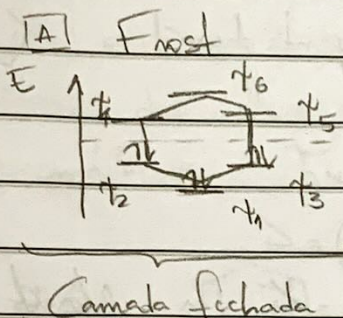 A Frost
E
ψ6
ψ4 ψ5
ψ2 ψ3
ψ1
Camada fechada